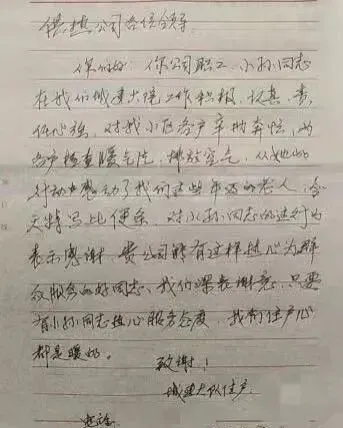 供热公司各位领导
你们好：你公司职工，小孙同志
在我们城建大院工作积极，认真，责
任心强，对我小区各户辛勤奔忙，为
各户检查暖气片，排放空气，从她的
行动中感动了我们这些年迈的老人，今
天特写此便条，对小孙同志的这行为
表示感谢，贵公司能有这样热心为群
众服务的好同志，我们深表谢意，只要
有小孙同志热心服务态度，我们住户心
都是暖的。
致谢！
城建大队住户